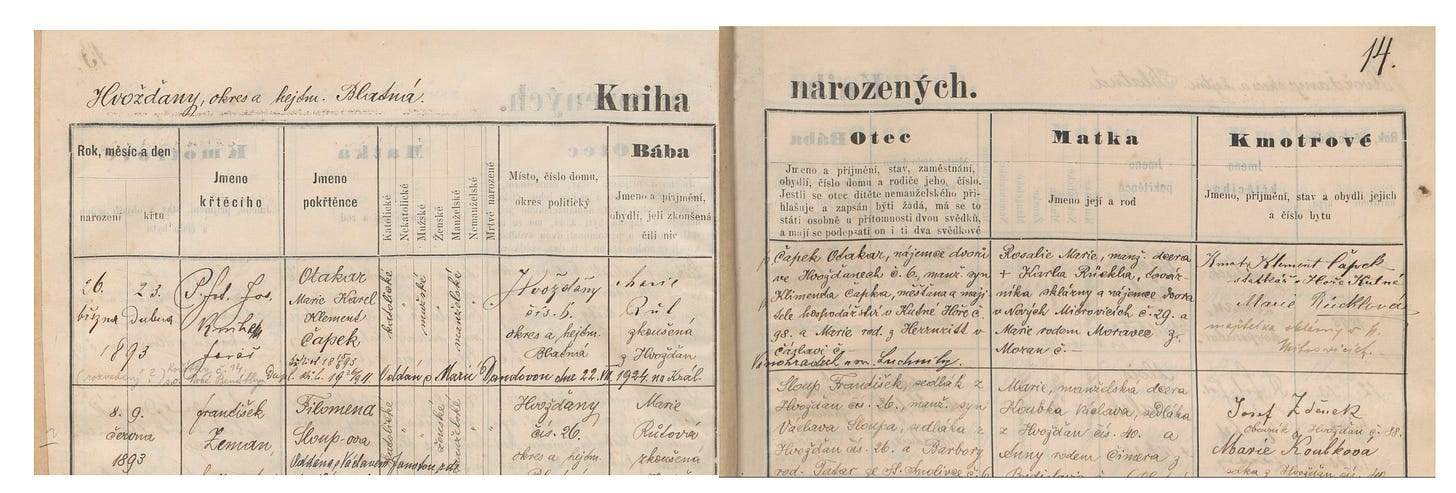 14.
Hvožďany, okres a hejtm. Blatná.
Kniha narozených.
Rok, měsíc a den
narození
křtu
Jméno
křtícího
Jméno
pokřtěnce
Katolické
Nekatolické
Mužské
Ženské
Manželské
Nemanželské
Mrtvě narozené
Místo, číslo domu,
okres politický
Bába
Jméno a příjmení,
obydlí, jeli zkoušená
čili nic
Otec
Jméno a příjmení, stav, zaměstnání,
obydlí, číslo domu a rodiče jeho, číslo.
Jestli se otec dítěte nemanželského při-
hlašuje a zapsán býti žádá, má se to
státi osobně u přítomnosti dvou svědků,
a mají se podepsati on i ti dva svědkové
Matka
Jméno její a rod
Kmotrové
Jméno, příjmení, stav a obydlí jejich
a číslo bytu
26. 23.
března dubna
1893
P. Jos.
Otakar
Marie Karel
Klement
Čapek
katolické
mužské
manželské
Hvožďany
čís. 6.
okres a hejtm.
Blatná
Marie
zkoušená
z Hvožďan
Čapek Otakar, nájemce dvora
ve Hvožďanech č. 6, manž. syn
Klimenta Čapka, měštína a maji-
tele hospodářství v Kutné Hoře č.
98. a Marie roz. z
Čáslavi č.
Vinohradech u sv. Ludmily.
Rosalie Marie, manž. dcera
+ Karla továr-
níka sklárny a nájemce dvora
v Nových Mitrovicích č. 29. a
Marie rodem Moravec z
Moran č.
Kmotr Klement Čapek
statkář v Hoře Kutné
Marie
majitelka sklárny v N.
Mitrovicích.
Oddán s Marií dne 22. VII. 1924. na Král.
8. 9.
června
1893
František
Zeman,
Filomena
Sloup-ova
Oddána s Václavem
katolické
ženské
manželské
Hvožďany
čís. 26.
okres a hejtm.
Marie
Rútová
zkoušená
Sloup František, sedlák z
Hvožďan čís. 26., manž. syn
Václava Sloupa, sedláka z
Hvožďan čís. 26. a Barbory
rod. Tatar ze
Marie, manželská dcera
Houbka Václava, sedláka
z Hvožďan čís. 40. a
Anny rodem z
Josef Zdeněk
z Hvožďan č. 38.
Marie Koubkova
z Hvožďan čís.